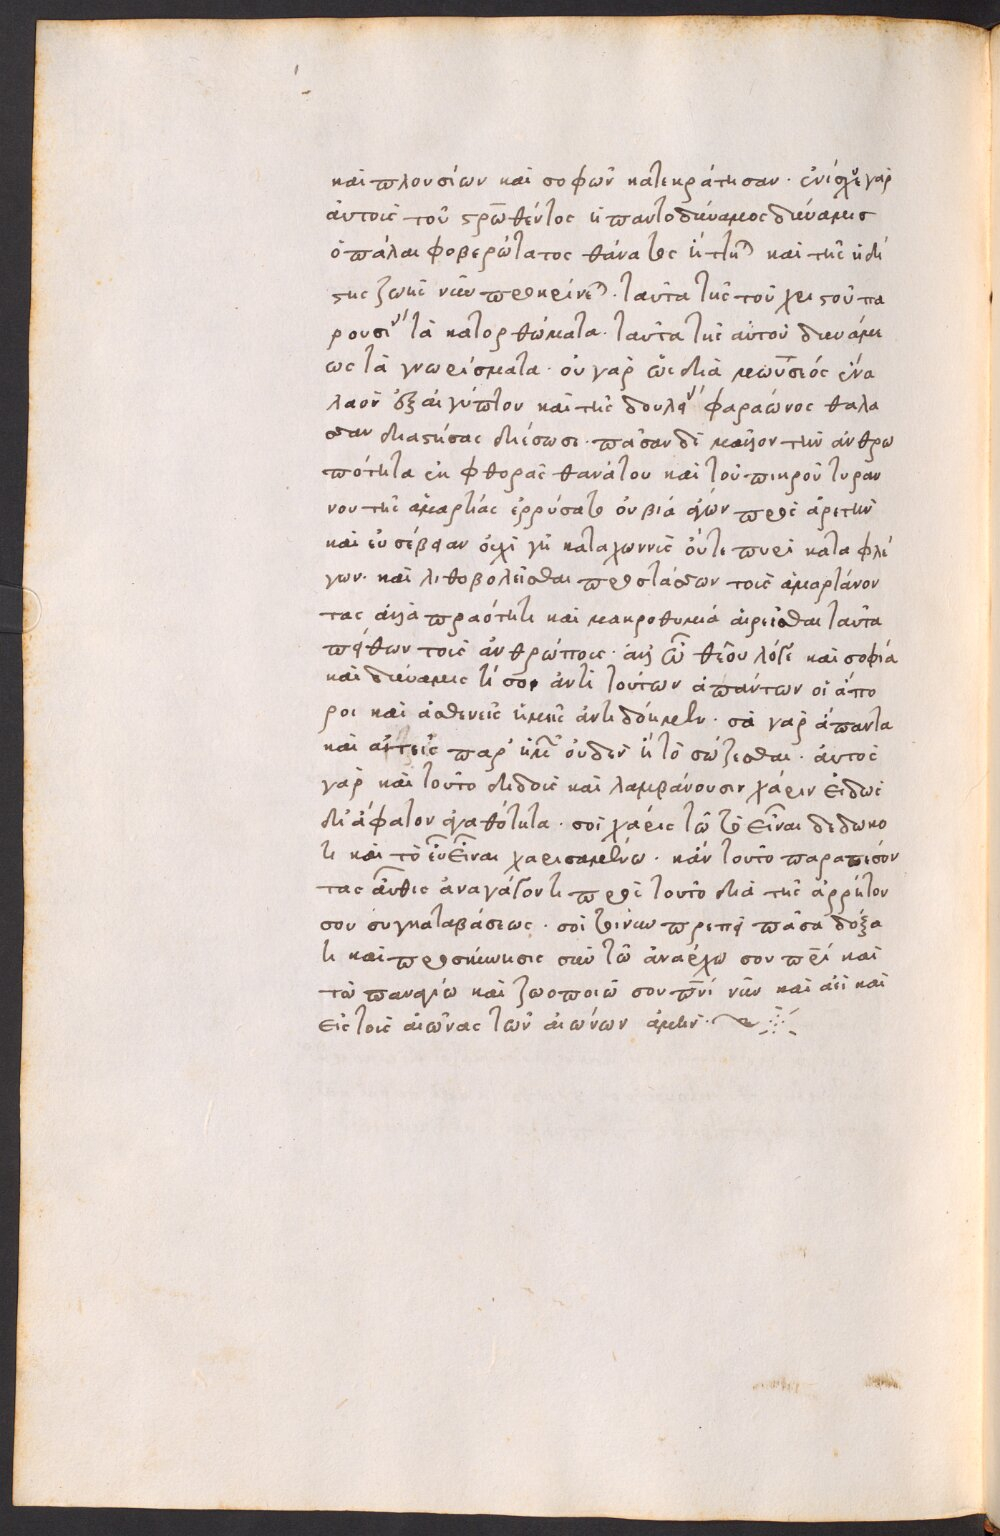 καὶ πλουσίων καὶ σοφῶν κατεκράτησαν· ἐνίσχυε γὰρ
αὐτοῖς τοῦ στρωθέντος ἡ παντοδύναμος δύναμις
ὁ πάλαι φοβερώτατος θάνατος καὶ τῆς ἡδί
στης ζωῆς νῦν προκρίνεται· ταῦτα τῆς τοῦ χριστοῦ πα
ρουσίας τὰ κατορθώματα· ταῦτα τῆς αὐτοῦ δυνάμε
ως τὰ γνωρίσματα· οὐ γὰρ ὡς διὰ μωϋσέως ἕνα
λαὸν ἐξ αἰγύπτου καὶ τῆς δουλείας φαραῶνος θάλα
σσαν διαστήσας διέσωσε· πᾶσαν δὲ μᾶλλον τὴν ἀνθρω
πότητα ἐκ φθορᾶς θανάτου καὶ τοῦ πικροῦ τυράν
νου τῆς ἁμαρτίας ἐρρύσατο οὐ βία ἄγων πρὸς ἀρετὴν
καὶ εὐσέβειαν οὐχὶ γῆ καταχωννὺς οὔτε πυρὶ καταφλέ
γων· καὶ λιθοβολεῖσθαι προστάσσων τοὺς ἁμαρτάνον
τας ἀλλὰ πραότητι καὶ μακροθυμία αἱρεῖσθαι ταῦτα
πείθων τοὺς ἀνθρώπους· ἀλλ ὦ θεοῦ λόγε καὶ σοφία
καὶ δύναμις τί σοι ἀντὶ τούτων ἁπάντων οἱ ἄπο
ροι καὶ ἀσθενεῖς ἡμεῖς ἀντιδώσομεν· σὰ γὰρ ἅπαντα
καὶ αἰτεῖς παρ ἡμῶν οὐδὲν ἢ τὸ σώζεσθαι· αὐτὸς
γὰρ καὶ τοῦτο διδοὺς καὶ λαμβάνουσιν χάριν εἰδὼς
δι ἄφατον ἀγαθότητα· σοὶ χάρις τῶ τὸ εἶναι δεδωκό
τι καὶ τὸ εὖ εἶναι χαρισαμένω· κἀν τοῦτο παραπεσόν
τας αὖθις ἀναγαγόντι πρὸς τοῦτο διὰ τῆς ἀρρήτου
σου συγκαταβάσεως· σοὶ τοίνυν πρέπει πᾶσα δόξα
τε καὶ προσκύνησις σὺν τῶ ἀνάρχω σου πρὶ καὶ
τῶ παναγίω καὶ ζωοποιῶ σου πνὶ νῦν καὶ ἀεὶ καὶ
εἰς τοὺς αἰῶνας τῶν αἰώνων ἀμήν·